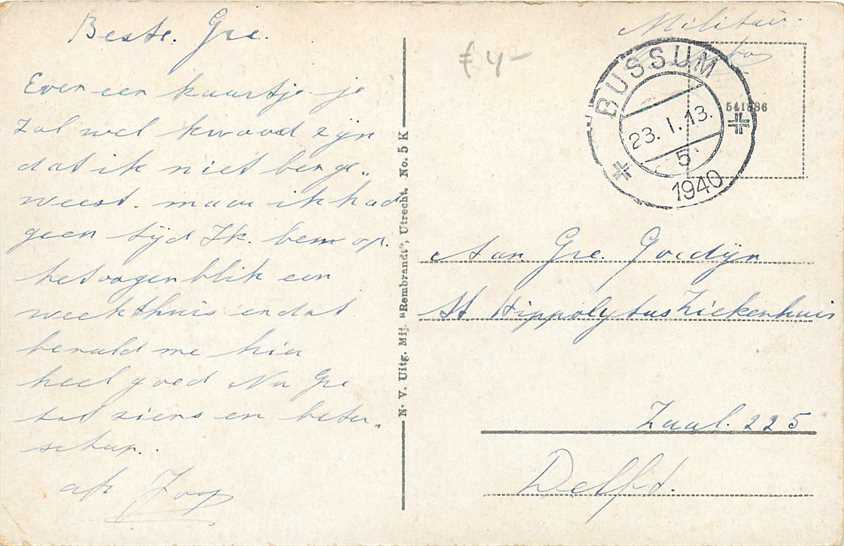 Beste. Gré.
Even een kaartje je
Zal wel kwaad zijn
dat ik niet ben ge„
weest. maar ik had
geen tijd Ik. ben op.
het oogenblik een
week thuis en dat
bevald me hier
heel goed Nu Gré
tot ziens en beter„
schap.
afz Joop
N. V. Uitg. Mij. „Rembrandt", Utrecht. No. 5 K
£ 4-
Militair
BUSSUM
23. I. 13.
5
1940
541886
Aan Gré. Goedijn
St Hippolytus Ziekenhuis
Zaal. 225
Delft.